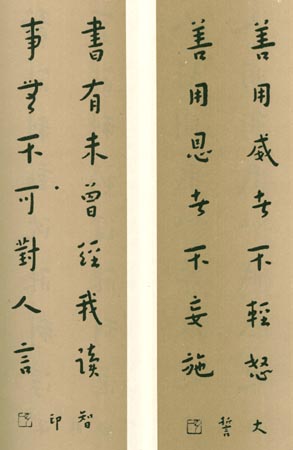 善用威者不輕怒
善用恩者不妄施
大誓
書有未曾經我讀
事無不可對人言
智印